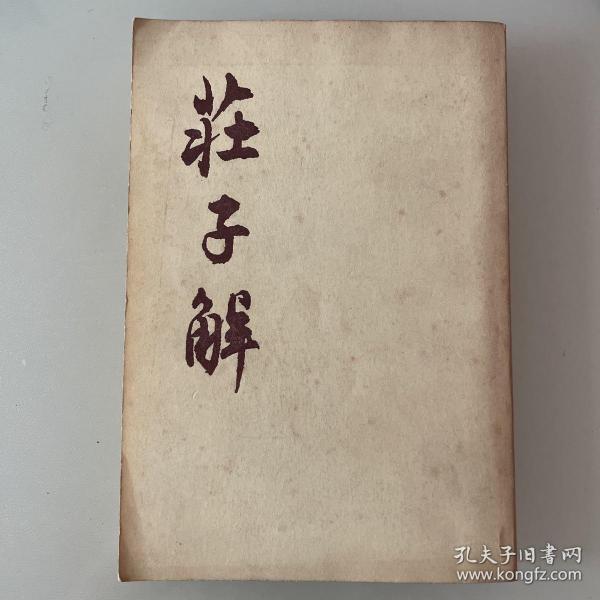 莊子解
孔夫子旧书网
www.kongfz.com